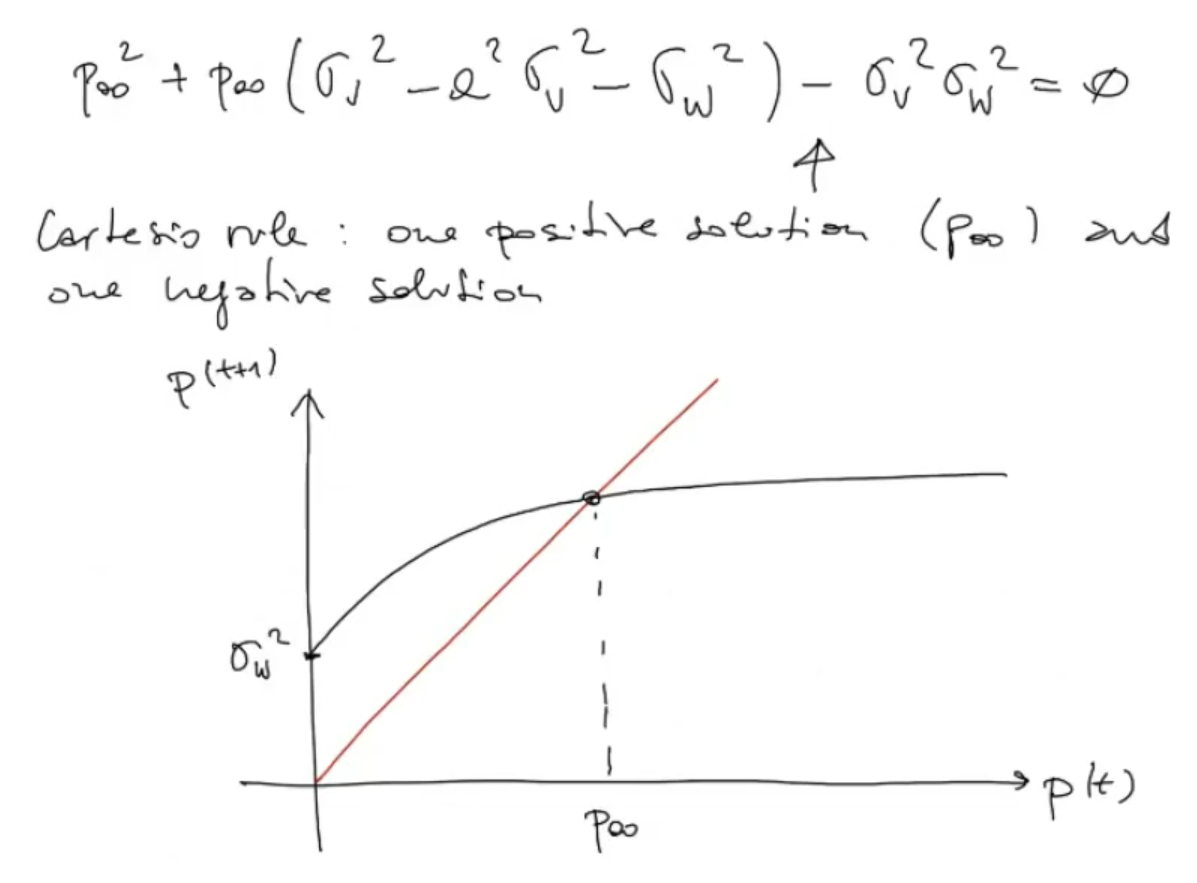 p∞² + p∞ (σᵥ² - a² σᵥ² - σ_W²) - σᵥ² σ_W² = ∅
↑
Cartesio rule : one positive solution (p∞) and
one negative solution
p(t+1)
σ_W²
p(t)
p∞